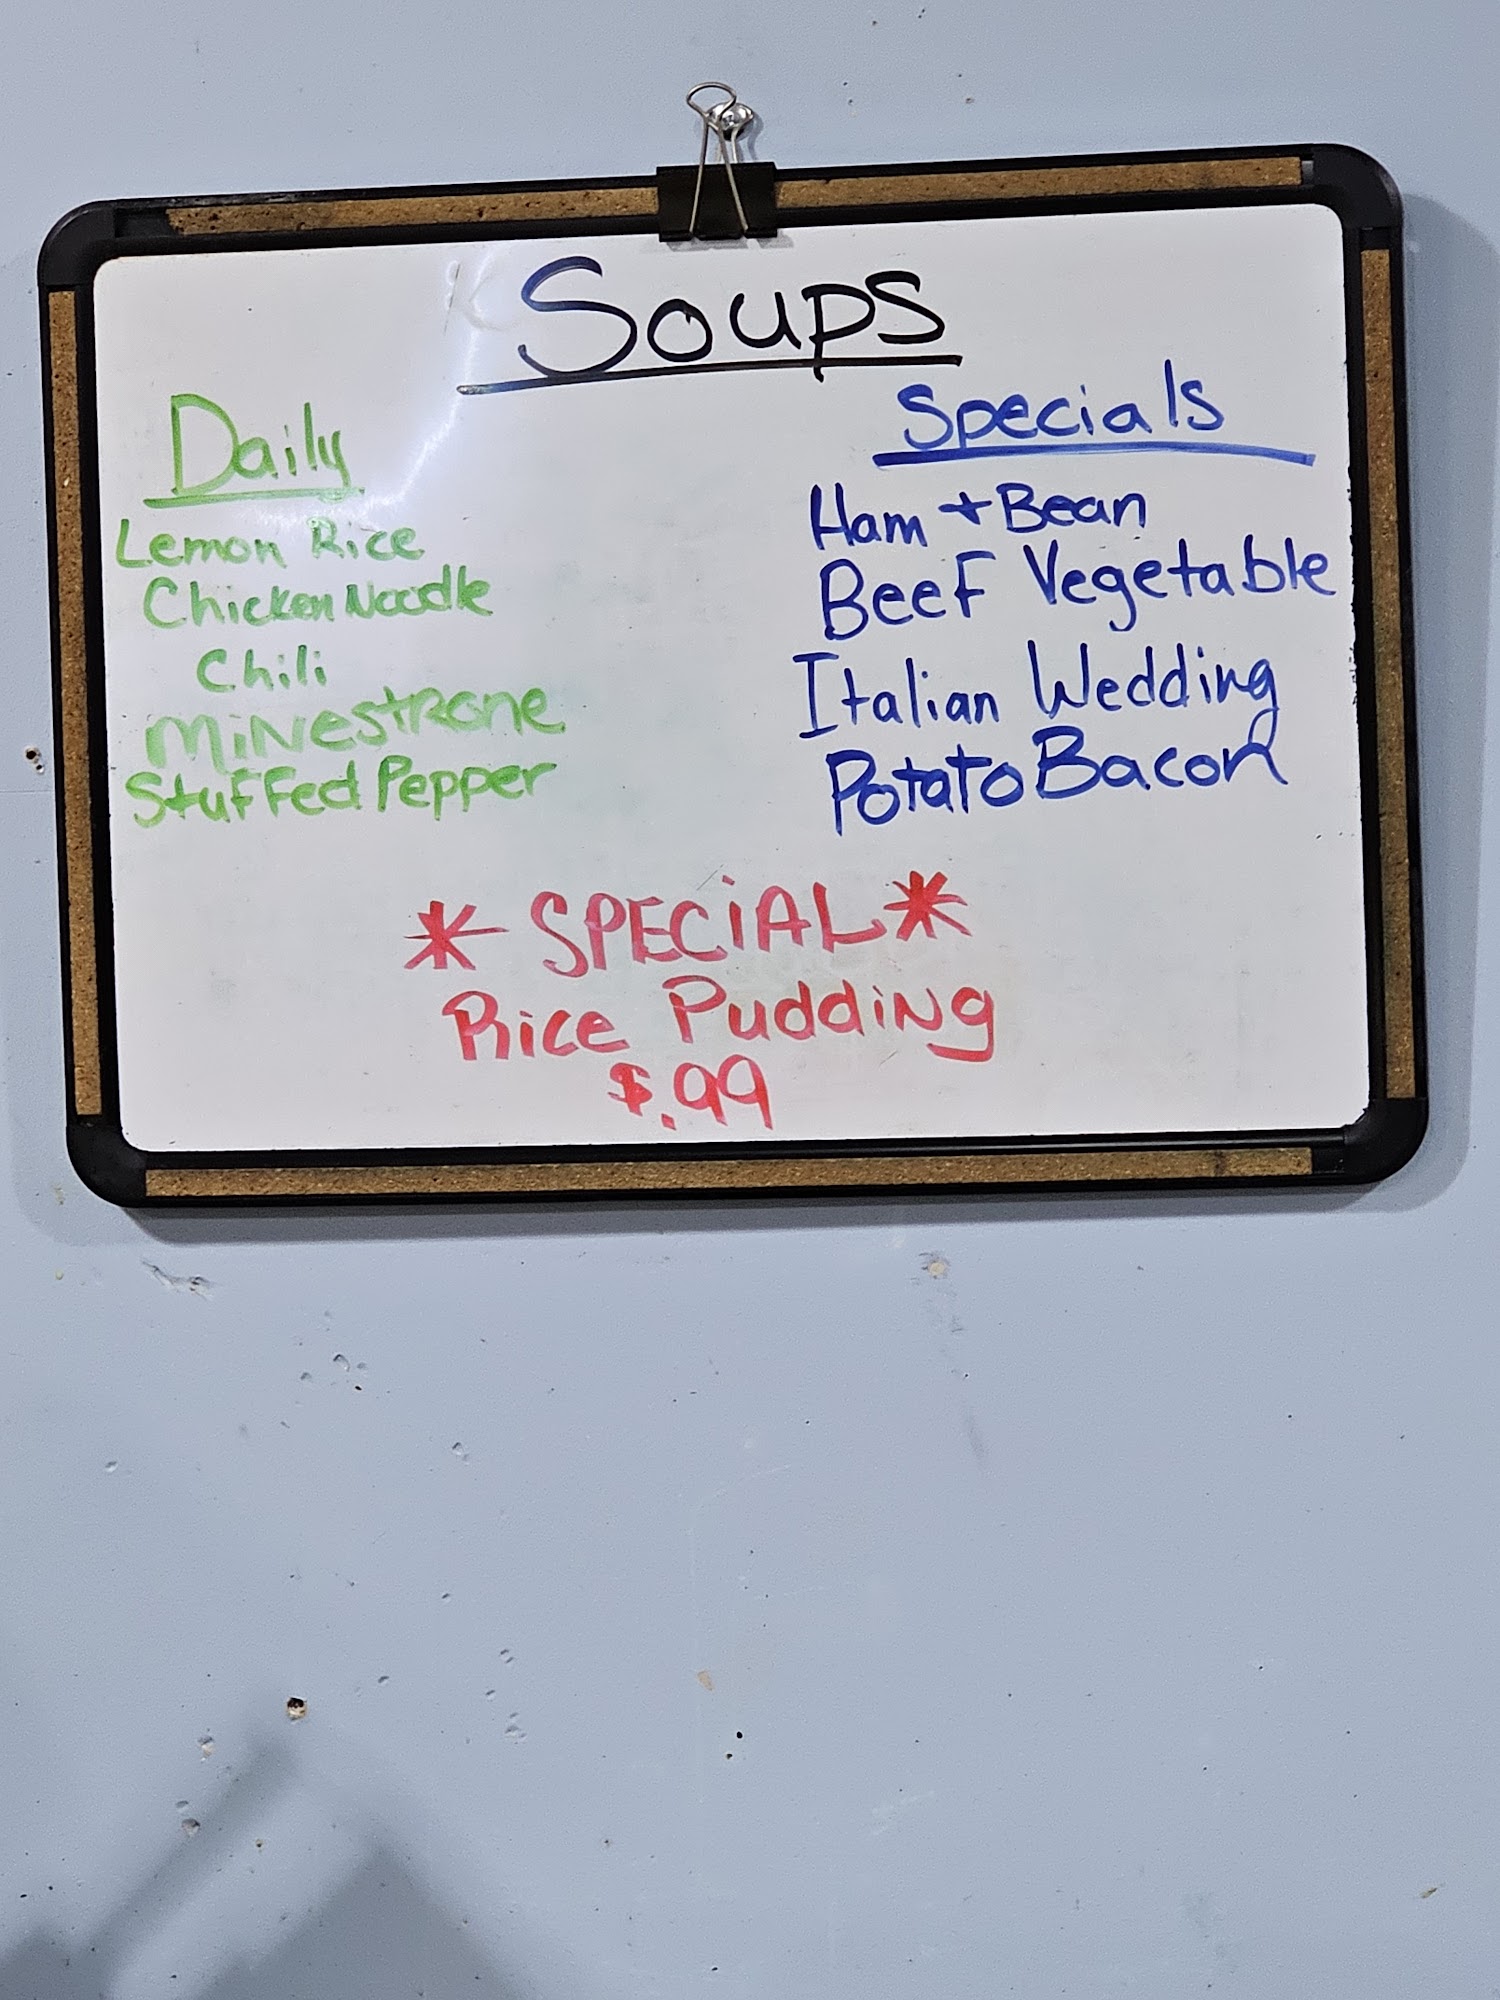 Soups
Daily
Lemon Rice
Chicken Noodle
Chili
MiNestRone
Stuffed Pepper
Specials
Ham + Bean
Beef Vegetable
Italian Wedding
Potato Bacon
* SPECiAL *
Rice Pudding
$.99